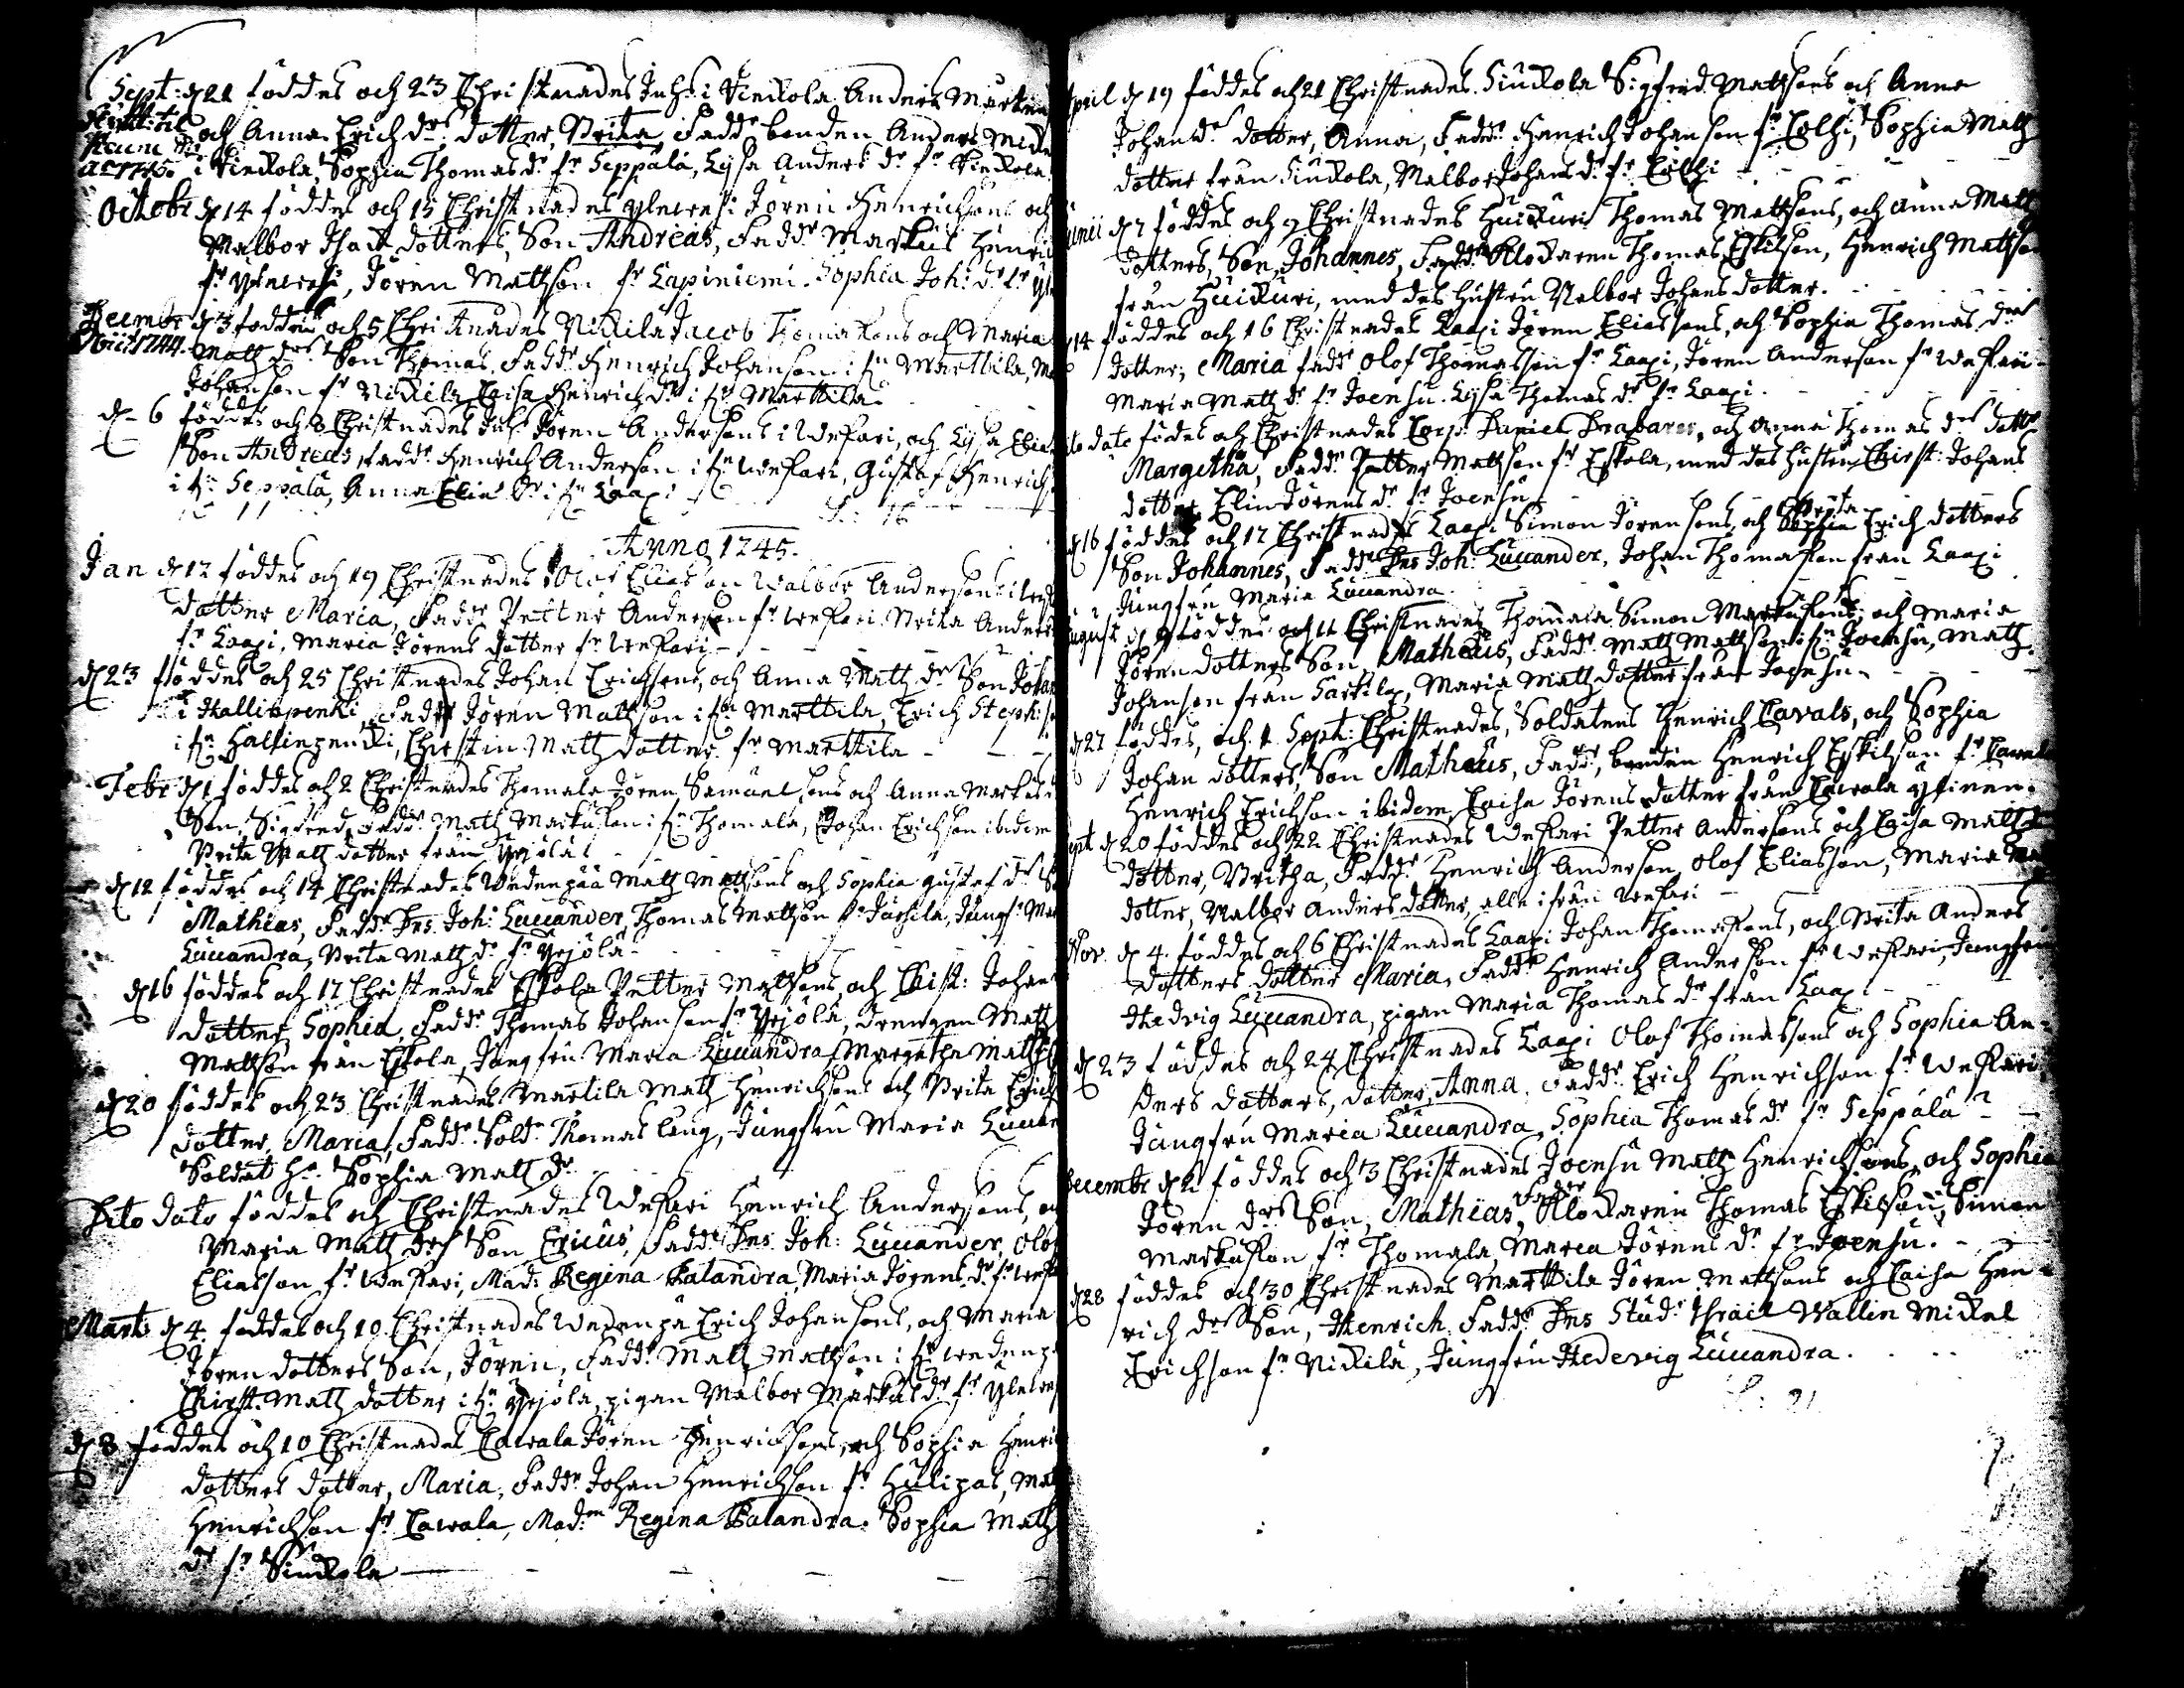 Sept: d 21 föddes och 23 Christnades Inhs i Vinckola Anders Marten
flytt: til och Anna Erich drs dotter, Brita, Fadd: bonden Anders Mick
a:o 1745. i Vinckola, Sophia Thomas dr fr Seppälä, Lysa Anders dr fr Vinckola
Octobr d 14 föddes och 15 Christnades Ylewesi Jören Henrichsons och
Walbor Isack dotters, Son Andreas, Fadd:r Markus Henric
fr Ylewesi, Jören Mattson fr Lapiniemi. Sophia Joh: dr fr Yle
Decembr d 3 föddes och 5 Christnades Nickilä Jacob Thomæsons och Maria
Obiit 1744. Matz drs Son Thomas. Fadd:r Henrich Johanson i fr Marttila, M
Johanson fr Nickilä, Caisa Henrich dr i fr Marttila
d. 6 föddes och 8 Christnades Inhs Jören Andersons i Wefari, och Lysa Elias
Son Andreas, fadd:r Henrich Anderson i fr Wefari, Gustaf Henrichs
i fr Seppälä, Anna Elias dr i fr Laaxi
Anno 1745.
Jan d 12 föddes och 19 Christnades Olof Eliason Walbor Andersons i
dotter Maria, Fadd:r Petter Anderson fr Wefari. Brita Anders
fr Laaxi, Maria Jörens dotter fr Wefari
d 23 föddes och 25 Christnades Johan Erichsons, och Anna Matz dr Son Johan
i Hallinpenki, Fadd:r Jören Mattson i fr Marttila, Erich Steph: s
i fr Hallinpenki, Christin Matz dotter fr Marttila
Febr d 1 föddes och 2 Christnades Thomala Jören Samuelsons och Anna Markus
Son, Sigfred, Fadd:r Matz Markuson i fr Thomala, Johan Erichson ibidem
Brita Matz dotter från Yrjölä
d 12 föddes och 14 Christnades Wedenpää Matz Matsons och Sophia Gustaf dr S
Mathias, Fadd:r Dns Joh: Lucander, Thomas Mattson fr Jushila, Jungf: Mar
Lucandra, Brita Matz dr fr Yrjölä
d 16 föddes och 17 Christnades Eskola Petter Matsons, och Christ: Johan
dotter Sophia, Fadd:r Thomas Johanson fr Yrjölä, drengen Matz
Mattson från Eskola, Jungfru Maria Lucandra, Margetha Matz
d 20 föddes och 23 Christnades Martila Matz Henrichsons och Brita Erich
dotter, Maria, Fadd:r Sold:n Thomas Leng, Jungfru Maria Lucan
Soldat h: Sophia Matz dr
Dito dato föddes och Christnades Wefari Henrich Andersons, oc
Maria Matz drs Son Ericus, Fadd:r Dns Joh: Lucander, Olof
Eliasson fr Wefari, Mad: Regina Palandra, Maria Jörens dr fr Wefa
Marti d 4. föddes och 10 Christnades Wedenpä Erich Johansons, och Maria
Jören dotters Son, Jören, Fadd:r Matz Mattson i fr Wedenp
Christ. Matz dotter i fr Yrjölä, pigan Walbor Markus dr fr Ylewes
d 8 föddes och 10 Christnades Cawala Jören Henrichsons, och Sophia Henri
dotters dotter, Maria, Fadd:r Johan Henrichson fr Hulipas, Mat
Henrichson fr Cawala, Mad:m Regina Palandra. Sophia Matz
dr fr Sinckola
April d 19 föddes och 21 Christnades Siuckola Sigfred Mattsons och Anna
Johans dr dotter, Anna, Fadd:r Henrich Johanson fr Colhi, Sophia Matz
dotter från Siuckola, Walbor Johans dr fr Colhi
Junii d 7 föddes och 9 Christnades Huickuri Thomas Mattsons, och Anna Matz
dotters, Son, Johannes, Fadd:r Klockaren Thomas Eskilson, Henrich Mattson
från Huickuri, med des hustru Walbor Johans dotter.
14 föddes och 16 Christnades Laaxi Jören Eliassons, och Sophia Thomas drs
dotter, Maria fadd:r Olof Thomasson fr Laaxi, Jören Anderson fr Wefari
Maria Matz dr fr Joensu. Lysa Thomas dr fr Laaxi.
Dito dato födes och Christnades Corp: Daniel Drabares, och Anna Thomas drs dotter
Margetha, Fadd:r Petter Mattson fr Eskola, med des hustru Christ: Johans
dotter Elin Jörens dr fr Joensu
Brita
d 16 föddes och 17 Christnades Laaxi Simon Jörensons, och Sophia Erich dotters
Son Johannes, Fadd:r Dns Joh: Lucander, Johan Thomason från Laaxi
Jungfru Maria Lucandra
August d 9 föddes och 11 Christnades Thomala Simon Markusons, och Maria
Jören dotters Son, Matheus, Fadd:r Matz Mattson i fr Joensu, Matz
Johanson från Sarkila, Maria Matz dotter från Joensu
d 27 föddes, och 1 Sept: Christnades, Soldatens Henrich Cavals, och Sophia
Johan dotters, Son Matheus, Fadd:r bonden Henrich Eskilson fr Cawala
Henrich Erichson ibidem, Caisa Jörens dotter från Cawala
Sept d 20 föddes och 22 Christnades Wefari Petter Andersons och Caisa Matz
dotter, Britha, Fadd:r Henrich Anderson, Olof Eliasson, Maria
dotter, Walbor Anders dotter, alle ifrån Wefari
Nov. d 4. föddes och 6 Christnades Laaxi Johan Thomæsons, och Brita Anders
dotters dotter Maria, Fadd:r Henrich Anderson fr Wefari, Jungfru
Hedvig Lucandra, pigan Maria Thomas dr från Laaxi
d 23 föddes och 24 Christnades Laaxi Olof Thomassons och Sophia An-
ders dotters, dotter, Anna. Fadd:r Erich Henrichson fr Wefari
Jungfru Maria Lucandra, Sophia Thomas dr fr Seppälä
Decembr d 2 föddes och 3 Christnades Joensu Matz Henrichsons, och Sophia
Jören drs Son, Mathias, Fadder Klockaren Thomas Eskilson, Simon
Markuson fr Thomala, Maria Jörens dr fr Joensu.
d 28 föddes och 30 Christnades Marttila Jören Mattsons och Caisa Hen-
rich drs Son, Henrich. Fadd:r Dns Stud: Israel Wallin Mickel
Erichson fr Nickilä, Jungfru Hedevig Lucandra.